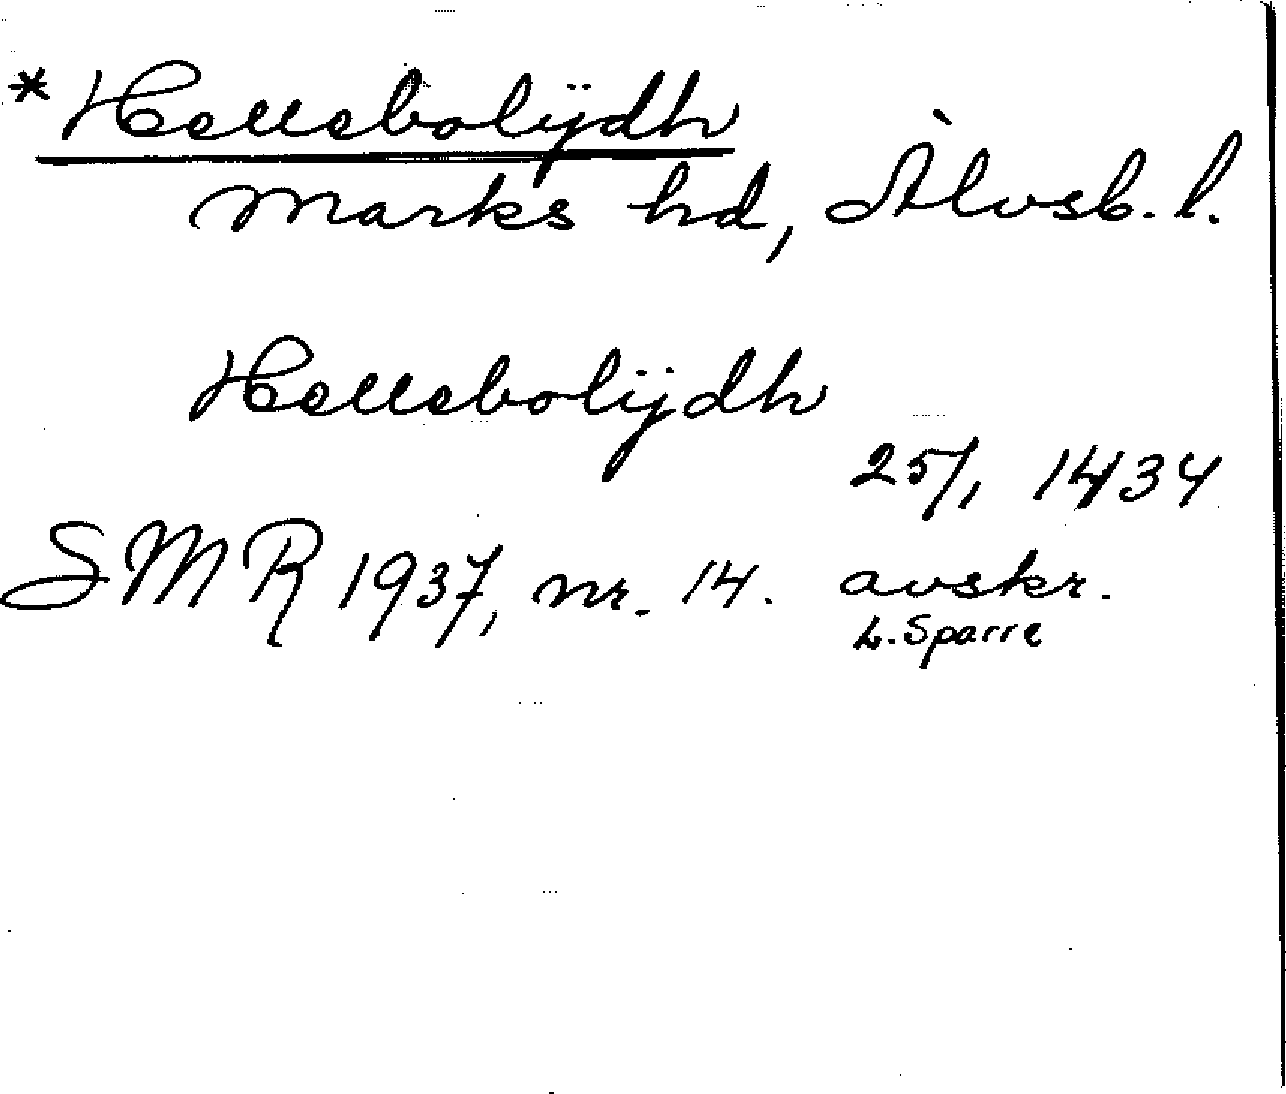 *Hellebolÿdh
Marks hd, Älvsb. l.
Hellebolÿdh
25/1 1434
SMR 1937, nr. 14. avskr.
L. Sparre